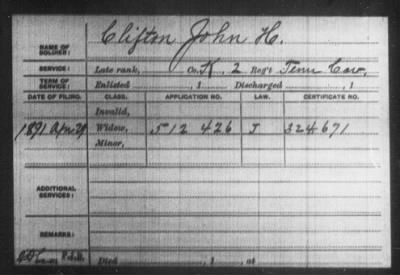 NAME OF SOLDIER: Clifton John H.
SERVICE: Late rank, Co. K, 2 Reg't Tenn Cav.
TERM OF SERVICE: Enlisted , 1 Discharged , 1
DATE OF FILING. CLASS. APPLICATION NO. LAW. CERTIFICATE NO.
Invalid,
1891 Apr 29 Widow, 512 426 J 324671
Minor,
ADDITIONAL SERVICES:
REMARKS:
Died , 1 , at